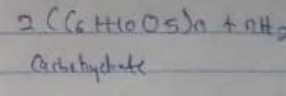 2 (C6 H10 O5)n + nH2
Carbohydrate